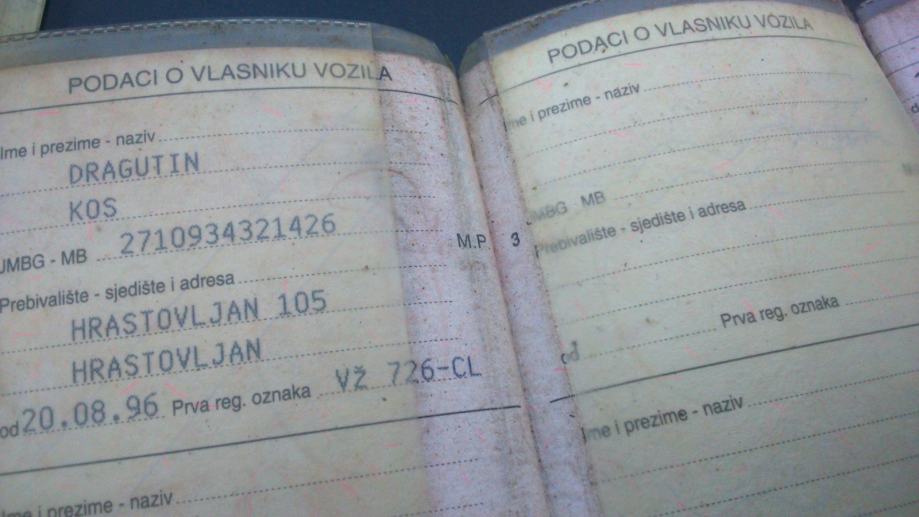 PODACI O VLASNIKU VOZILA
Ime i prezime - naziv
DRAGUTIN
KOS
JMBG - MB 2710934321426
Prebivalište - sjedište i adresa
HRASTOVLJAN 105
HRASTOVLJAN
od 20.08.96 Prva reg. oznaka VŽ 726-CL
Ime i prezime - naziv
M.P 3
PODACI O VLASNIKU VOZILA
Ime i prezime - naziv
JMBG MB
Prebivalište - sjedište i adresa
od Prva reg. oznaka
Ime i prezime - naziv